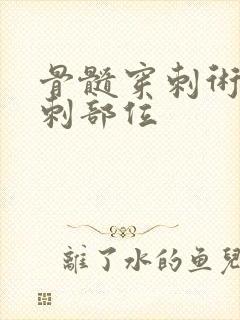 骨髓穿刺術
刺部位
離了水的鱼兒